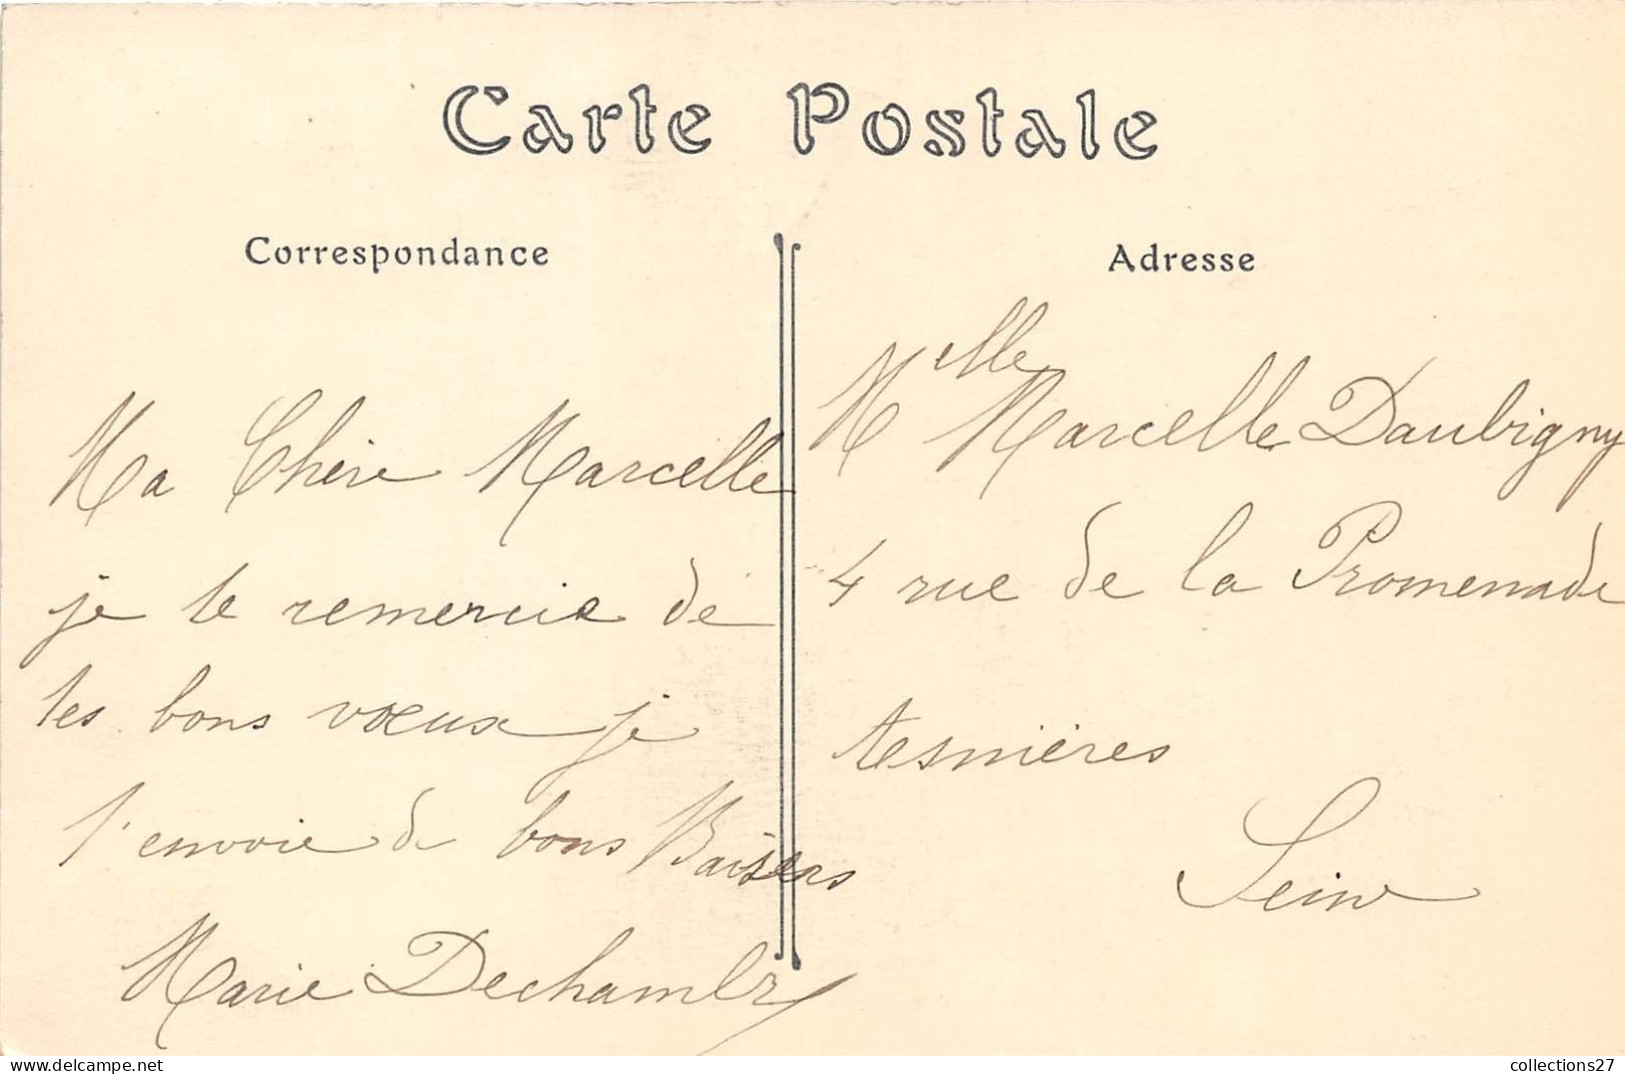 Carte Postale
Correspondance
Ma Chère Marcelle
je te remercie de
tes bons vœux je
t'envoie de bons Baisers
Marie Dechambr
Adresse
Melle Marcelle Daubigny
4 rue de la Promenade
Asnières
Seine
delcampe.net
collections27